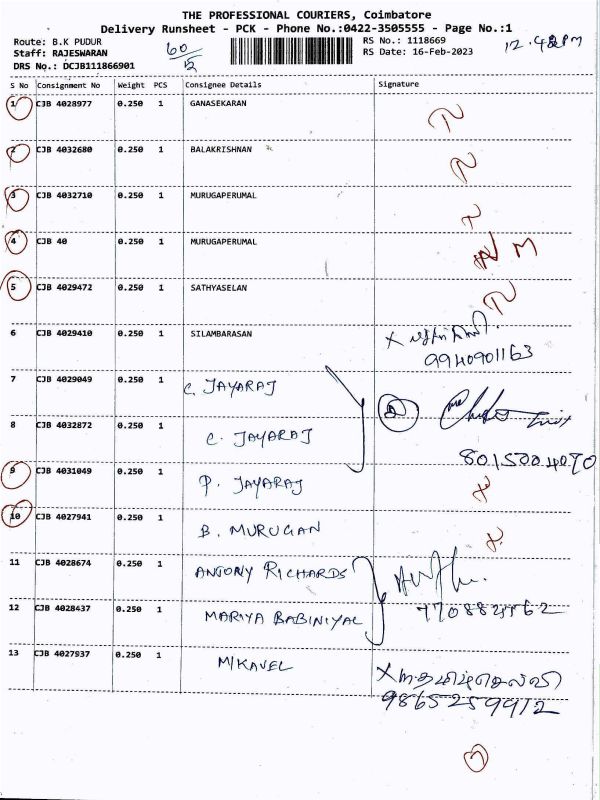 THE PROFESSIONAL COURIERS, Coimbatore
Delivery Runsheet - PCK - Phone No.:0422-3505555 - Page No.:1
Route: B.K PUDUR 60/5 RS No.: 1118669 12.48PM
Staff: RAJESWARAN RS Date: 16-Feb-2023
DRS No.: DCJB111866901
S No Consignment No Weight PCS Consignee Details Signature
1 CJB 4028977 0.250 1 GANASEKARAN
2 CJB 4032680 0.250 1 BALAKRISHNAN
3 CJB 4032710 0.250 1 MURUGAPERUMAL
4 CJB 40 0.250 1 MURUGAPERUMAL
5 CJB 4029472 0.250 1 SATHYASELAN
6 CJB 4029410 0.250 1 SILAMBARASAN
9940901163
7 CJB 4029049 0.250 1 C. JAYARAJ
8 CJB 4032872 0.250 1 C. JAYARAJ
8015004090
9 CJB 4031049 0.250 1 P. JAYARAJ
10 CJB 4027941 0.250 1 B. MURUGAN
11 CJB 4028674 0.250 1 ANTONY RICHARDS
12 CJB 4028437 0.250 1 MARIYA BABINIYAL
13 CJB 4027937 0.250 1 MIKAVEL
9865259912